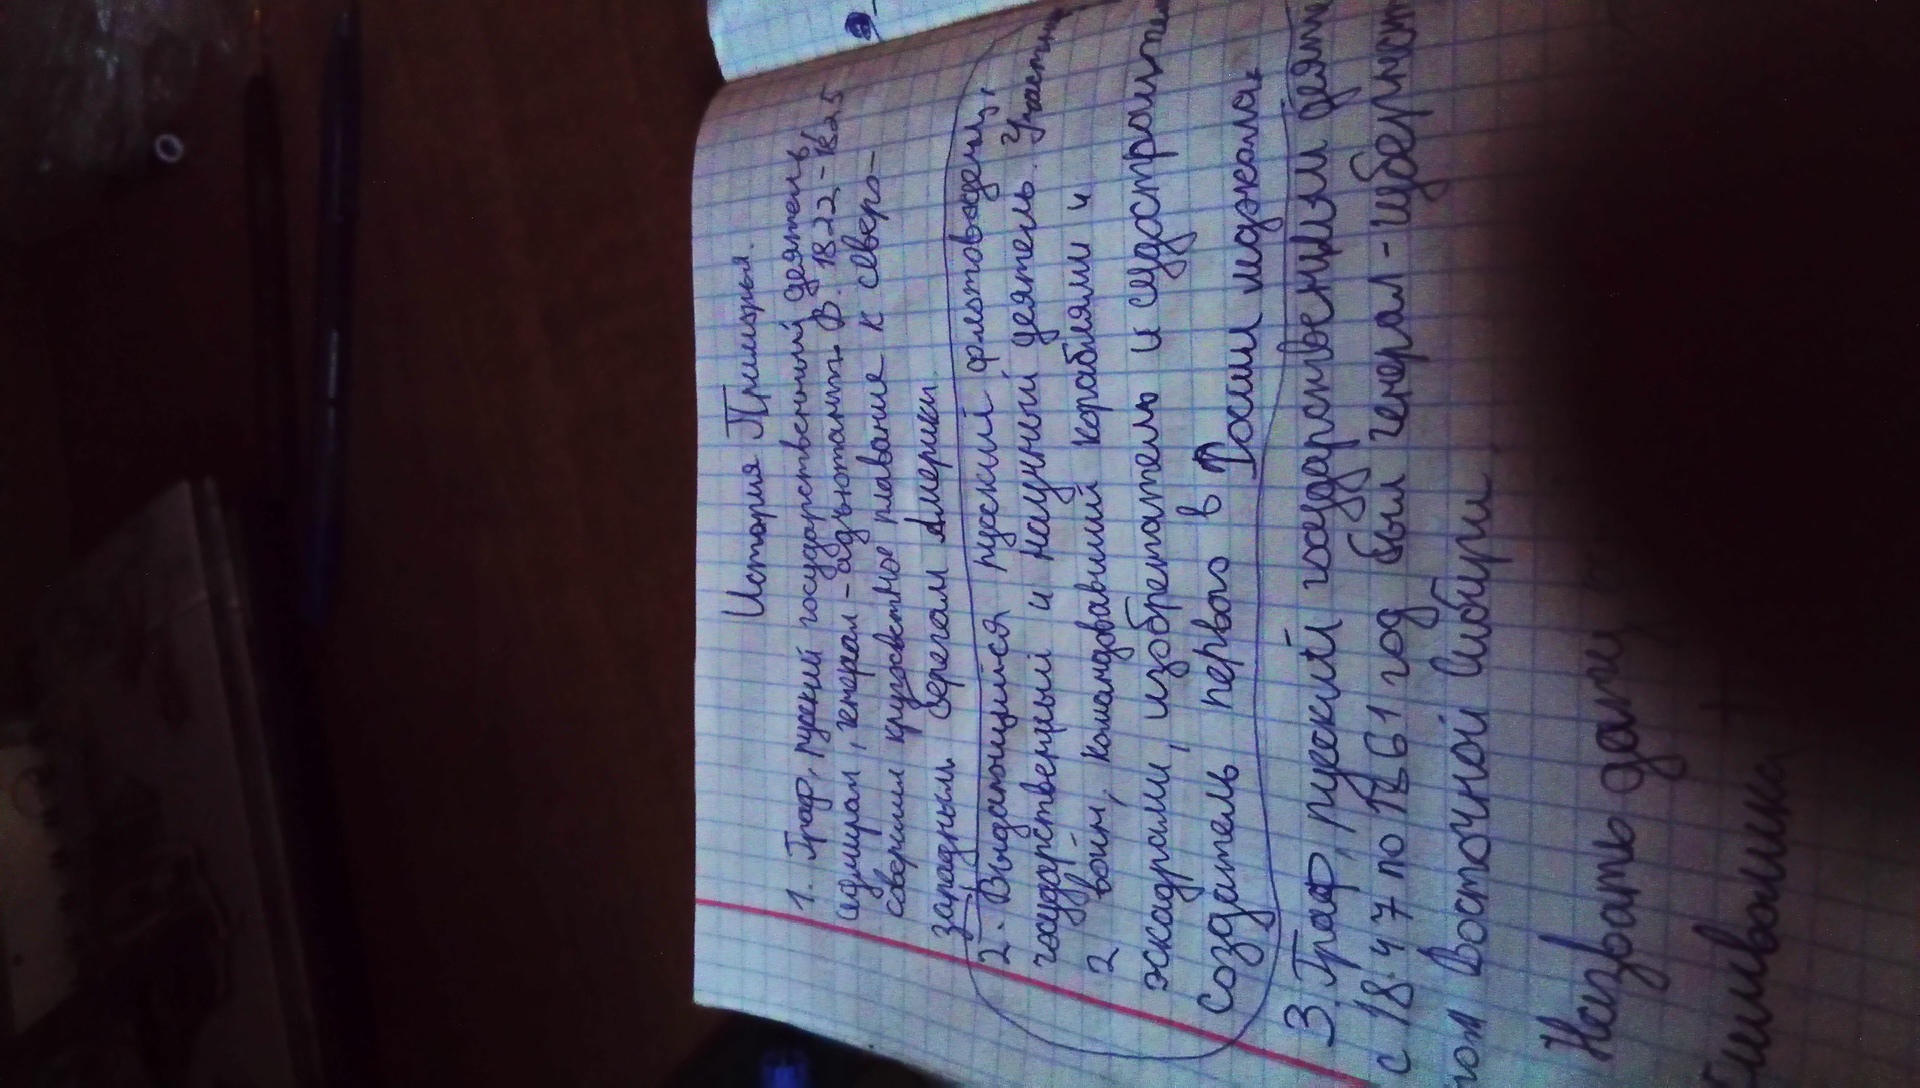 История Приморья.
1. Граф, русский государственный деятель,
адмирал, генерал-адъютант. В 1822-1825
совершил кругосветное плавание к северо-
западным берегам Америки.
2. Выдающийся русский флотоводец,
государственный и научный деятель. Участник
2 войн, командовавший кораблями и
эскадрами, изобретатель и судостроитель
Создатель первого в России ледокола.
3. Граф, русский государственный деяте
с 1847 по 1861 год был генерал-губернат
ром Восточной Сибири
Назвать даты
символика